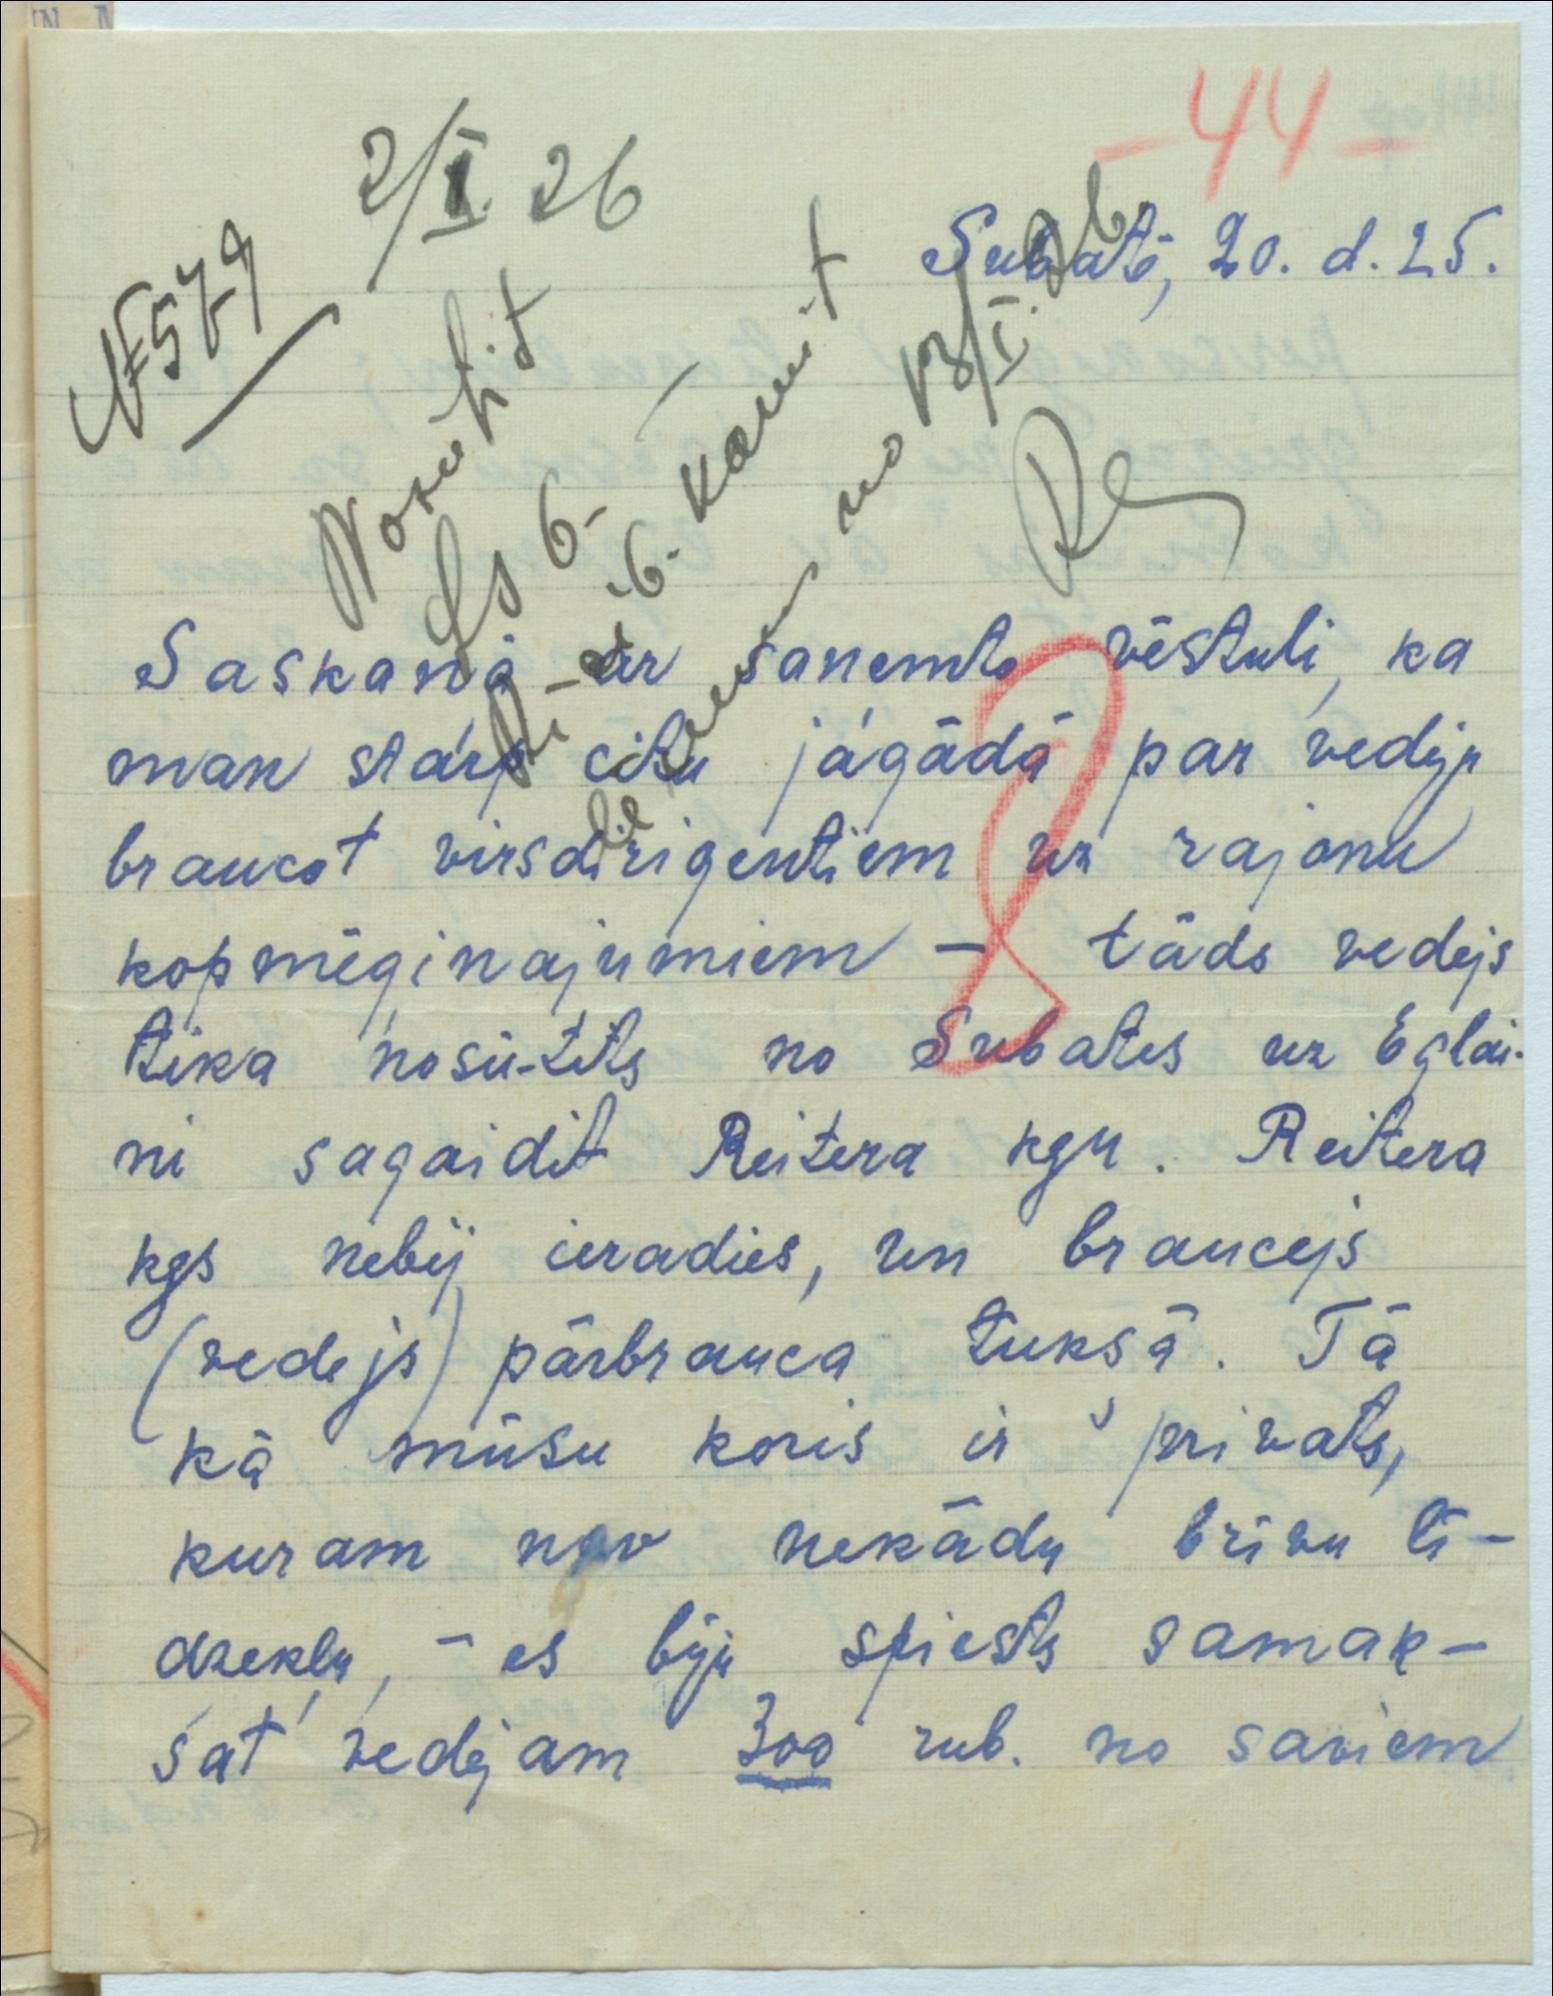 - 44 -
2/I 26
№ 579
Subatē, 20. d. 25.
Nosūtīt
Ls 6.-
6.- 
no 13/I. 26
Saskaņā ar saņemto vēstuli, ka
man stárp citu jāgādā par vedēju
braucot virsdirigentiem uz rajonu
kopmēģinajumiem – tāds vedējs
tika nosū-tīts no Subates uz Eglai-
ni sagaidit Reitera kgu. Reitera
kgs nebij ieradies, un braucejs
(vedejs) pārbrauca tukšā. Tā
kā mūsu koris ir privats,
kuram nav nekādu brīvu lī-
dzekļu, – es biju spiests samak-
sat vedējam 300 rub. no saviem